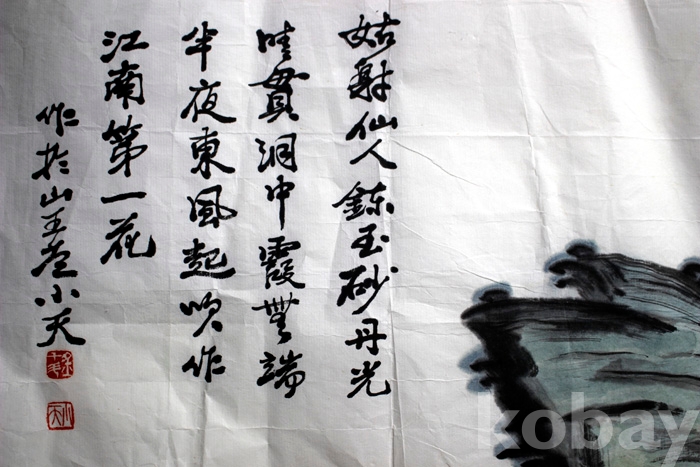 姑射仙人鍊玉砂丹光
時貫洞中霞無端
半夜東風起吹作
江南第一花
作於山王巷小天
kobay